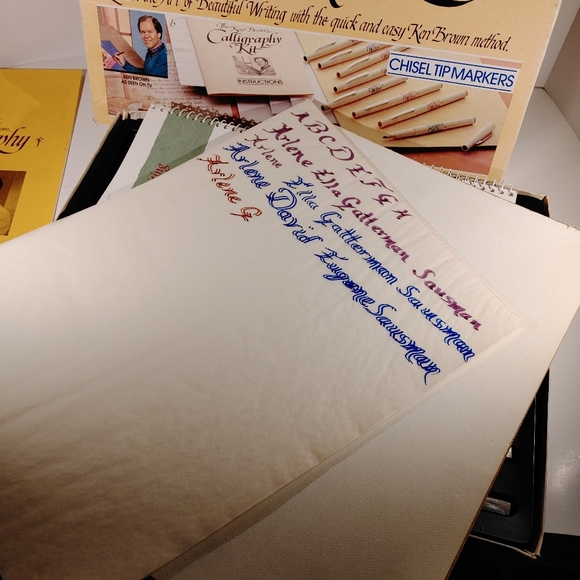 the Art of Beautiful Writing with the quick and easy Ken Brown method.
KEN BROWN
AS SEEN ON TV
The Ken Brown
Calligraphy
Kit
INSTRUCTIONS
CHISEL TIP MARKERS
ABCDEFGH
Arlene Ella Gatterman Sausman
Arlene Ella Gatterman Sausman
Arlene David Eugene Sausman
Arlene G